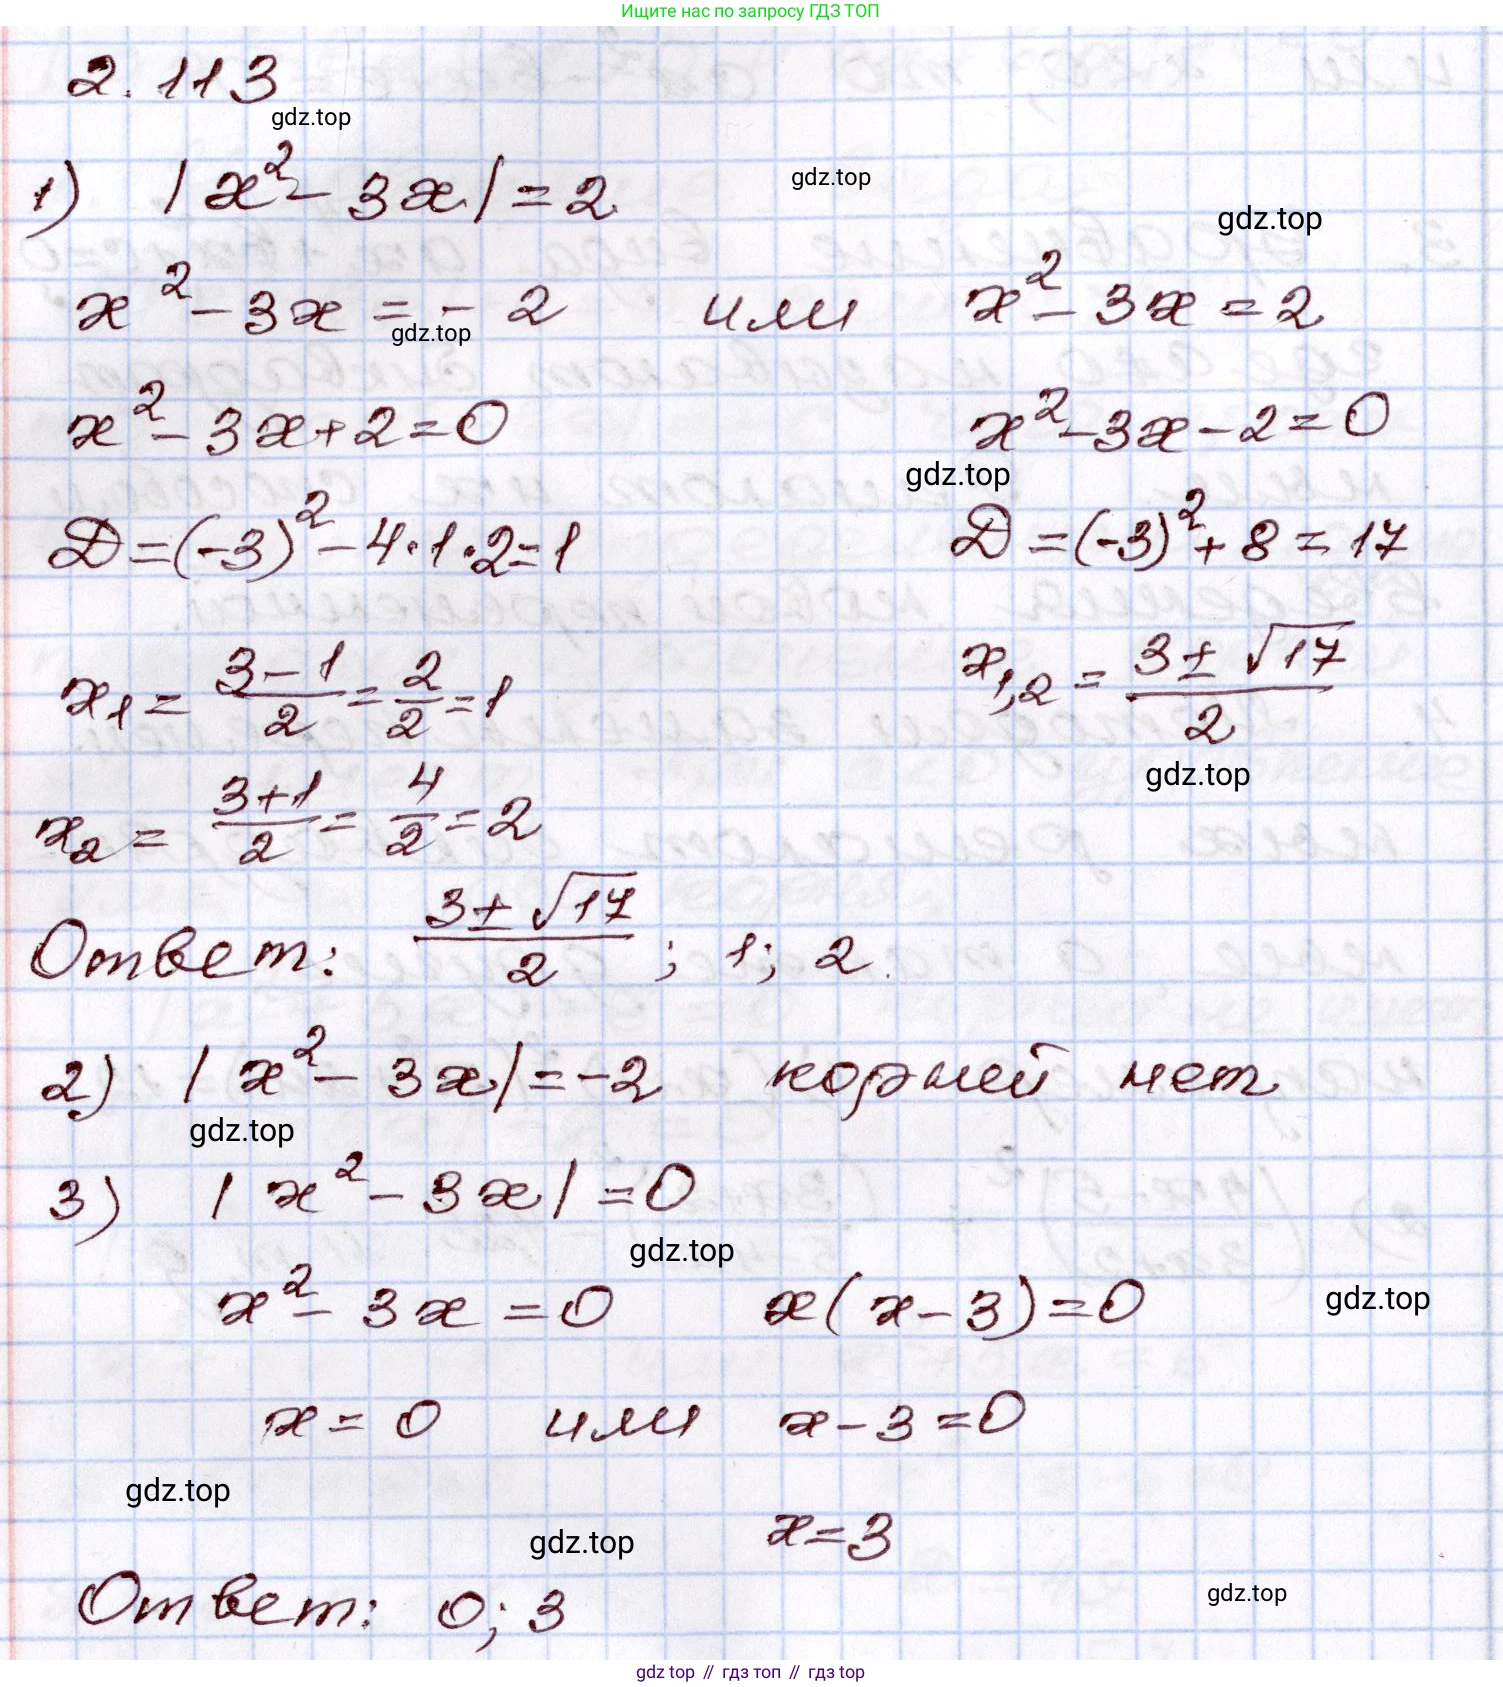 Ищите нас по запросу ГДЗ ТОП
2.113
gdz.top
1) |x² - 3x| = 2
gdz.top
gdz.top
x² - 3x = - 2 или x² - 3x = 2
gdz.top
x² - 3x + 2 = 0 x² - 3x - 2 = 0
gdz.top
D = (-3)² - 4·1·2 = 1 D = (-3)² + 8 = 17
x₁ = (3 - 1)/2 = 2/2 = 1 x₁,₂ = (3 ± √17)/2
gdz.top
x₂ = (3+1)/2 = 4/2 = 2
Ответ: (3 ± √17)/2 ; 1; 2.
2) |x² - 3x| = -2 корней нет
gdz.top
3) |x² - 3x| = 0
gdz.top
x² - 3x = 0 x(x - 3) = 0
gdz.top
x = 0 или x - 3 = 0
gdz.top
x = 3
gdz.top
Ответ: 0; 3
gdz.top
gdz top // гдз топ // гдз top